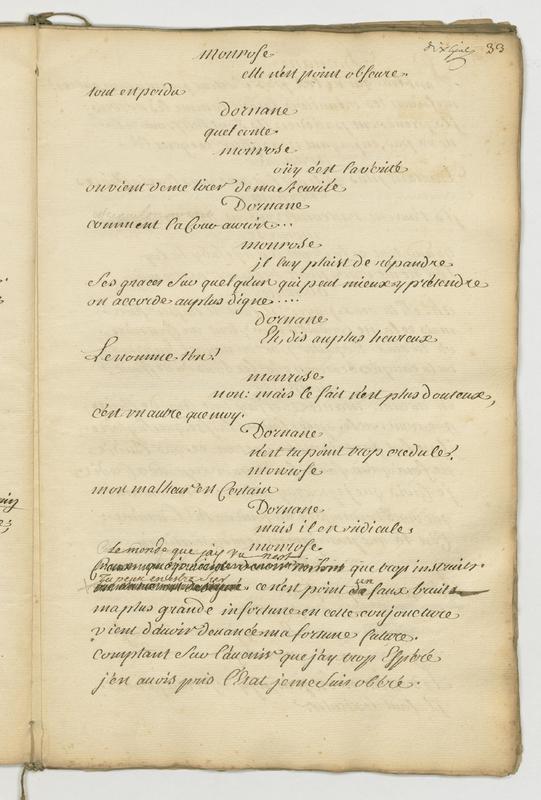 33
monrose
elle n'est point obscure.
tout en perdu
Dornane
quel conte.
monrose
ouy c'est la verité
on vient de me tirer de ma securité
Dornane
comment la Cour auroit...
monrose
jl luy plaist de répandre
Ses graces Sur quelqu'un qui peut mieux y prétendre
on accorde au plus digne....
dornane
Eh, dis au plus heureux
Le nomme t'on?
monrose
non: mais le fait n'est plus douteux,
c'est vn autre que moy.
Dornane
n'est tu point trop credule?
monrose
mon malheur en Certain
Dornane
mais il en ridicule;
monrose.
Le monde que j'ay vu n'est
que trop instruit.
Tu peux en estre Sur
ce n'est point un faux bruit
ma plus grande infortune en cette conjoncture
vient d'auoir deuancé ma fortune future.
comptant Sur l'auenir que j'ay trop Esperé
j'en auois pris l'Etat je me Suis obéré.